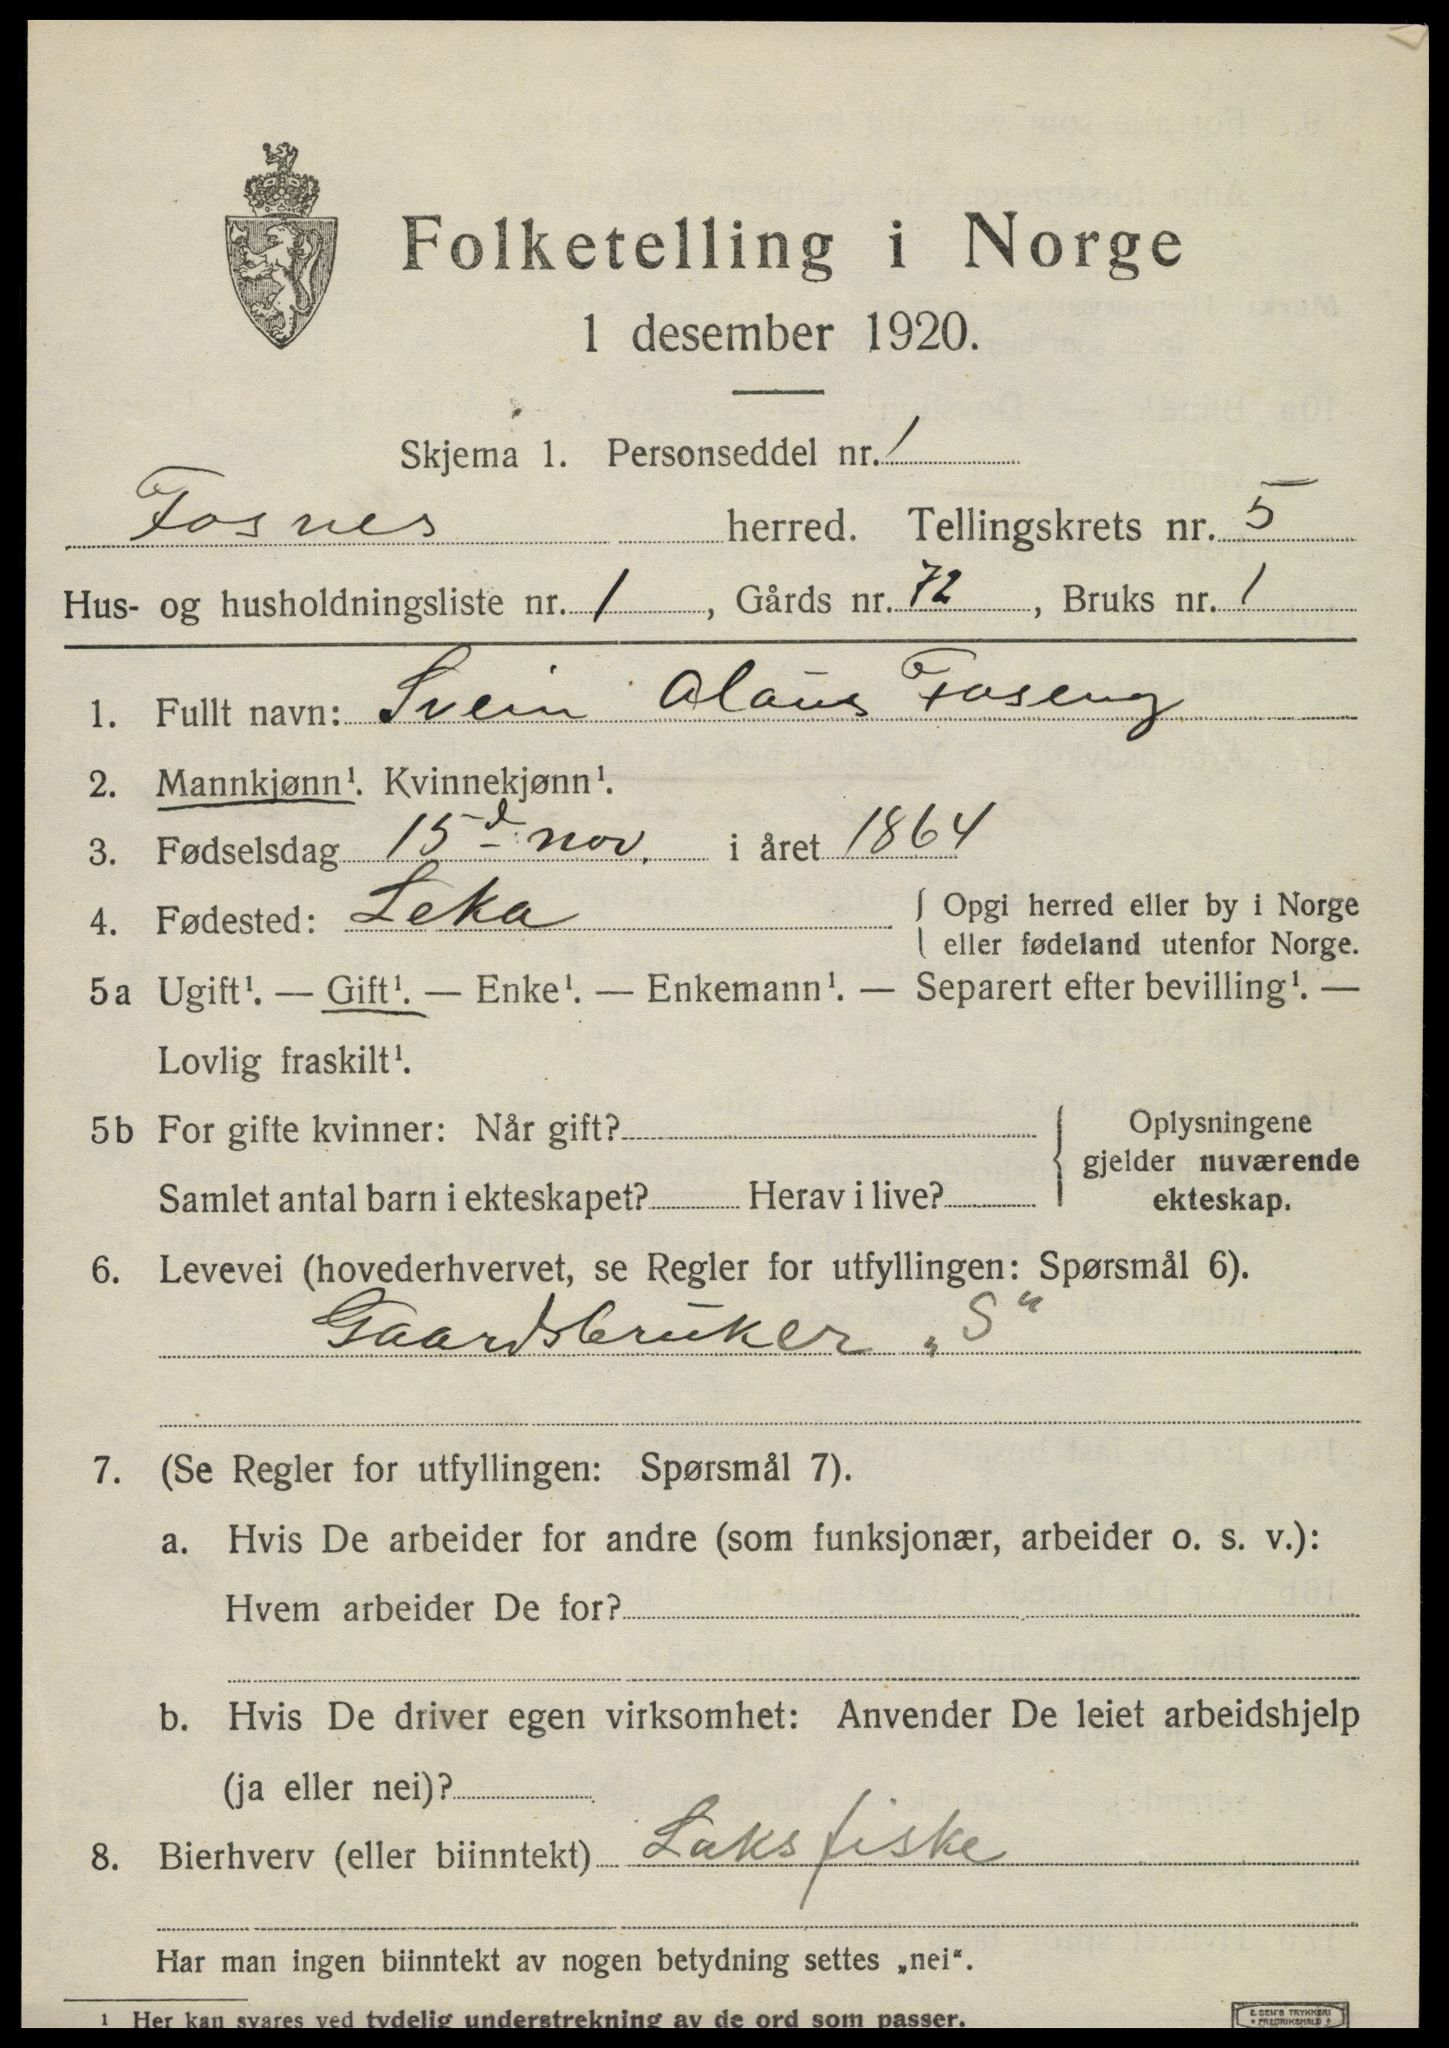 Folketelling i Norge
1 desember 1920.
Skjema 1. Personseddel nr. 1
Fosnes herred. Tellingskrets nr. 5
Hus- og husholdningsliste nr. 1, Gårds nr. 72, Bruks nr. 1
1. Fullt navn: Svein Olaus Foseng
2. Mannkjønn¹. Kvinnekjønn¹.
3. Fødselsdag 15d nov. i året 1864
4. Fødested: Leka { Opgi herred eller by i Norge
eller fødeland utenfor Norge.
5a Ugift¹. — Gift¹. — Enke¹. — Enkemann¹. — Separert efter bevilling¹. —
Lovlig fraskilt¹.
5b For gifte kvinner: Når gift?
Samlet antal barn i ekteskapet? Herav i live?
Oplysningene
gjelder nuværende
ekteskap.
6. Levevei (hovederhvervet, se Regler for utfyllingen: Spørsmål 6).
Gaardsbruker „S“
7. (Se Regler for utfyllingen: Spørsmål 7).
a. Hvis De arbeider for andre (som funksjonær, arbeider o. s. v.):
Hvem arbeider De for?
b. Hvis De driver egen virksomhet: Anvender De leiet arbeidshjelp
(ja eller nei)?
8. Bierhverv (eller biinntekt) Laksfiske
Har man ingen biinntekt av nogen betydning settes „nei“.
¹ Her kan svares ved tydelig understrekning av de ord som passer.
E. SEM'S TRYKKERI
FREDRIKSHALD